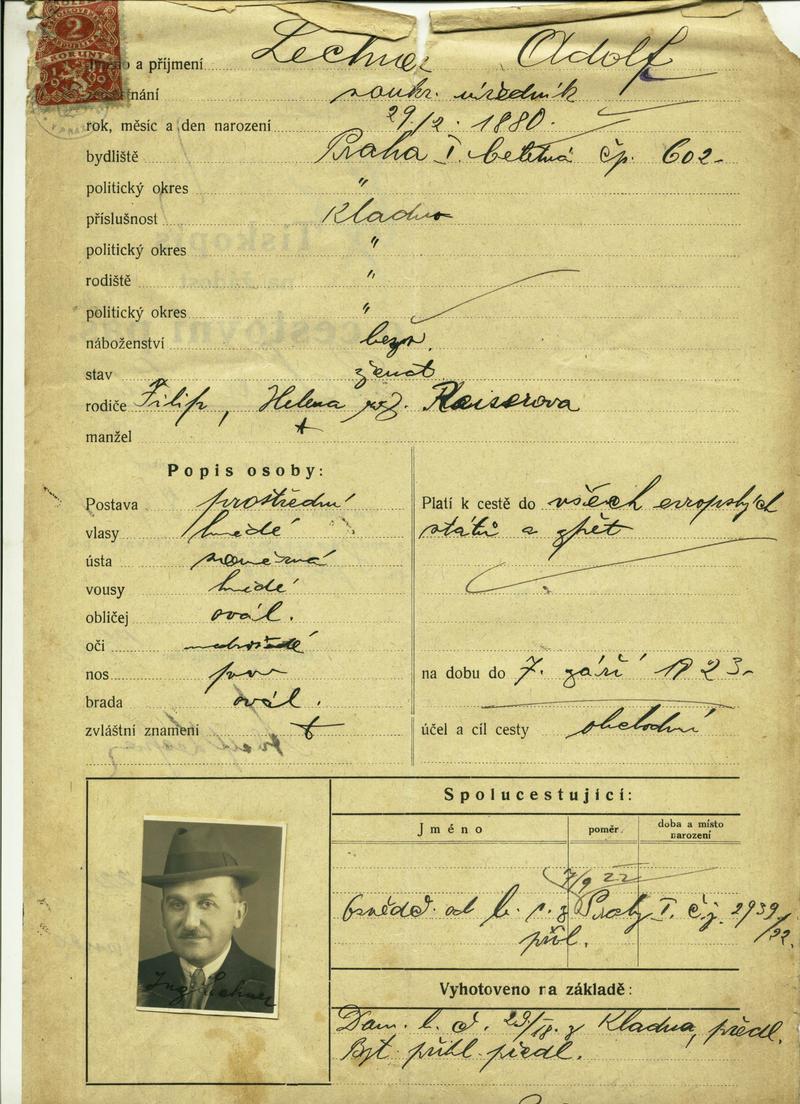 2
KORUNY
Lechner Adolf
Jméno a příjmení
zaměstnání soukr. úředník
rok, měsíc a den narození 29/2. 1880.
bydliště Praha I. Betlémská čp. 602
politický okres "
příslušnost Kladno
politický okres "
rodiště "
politický okres "
náboženství bezv.
stav ženat
rodiče Filip, Helena roz. Reiserova
manžel
Popis osoby:
Postava prostřední
vlasy hnědé
ústa souměrná
vousy hnědé
obličej ovál.
oči
nos
brada ovál.
zvláštní znamení
Platí k cestě do všech evropských
států a zpět
na dobu do 7. září 1923
účel a cíl cesty obchodní
Spolucestující:
Jméno
poměr
doba a místo
narození
7/9 22
Osvědč. od b. r. z Prahy I. čj. 2939/22.
příl.
Vyhotoveno na základě:
Dom. l. d. 23/IX. z Kladna, předl.
Byt. přihl. předl.
Ing Lechner